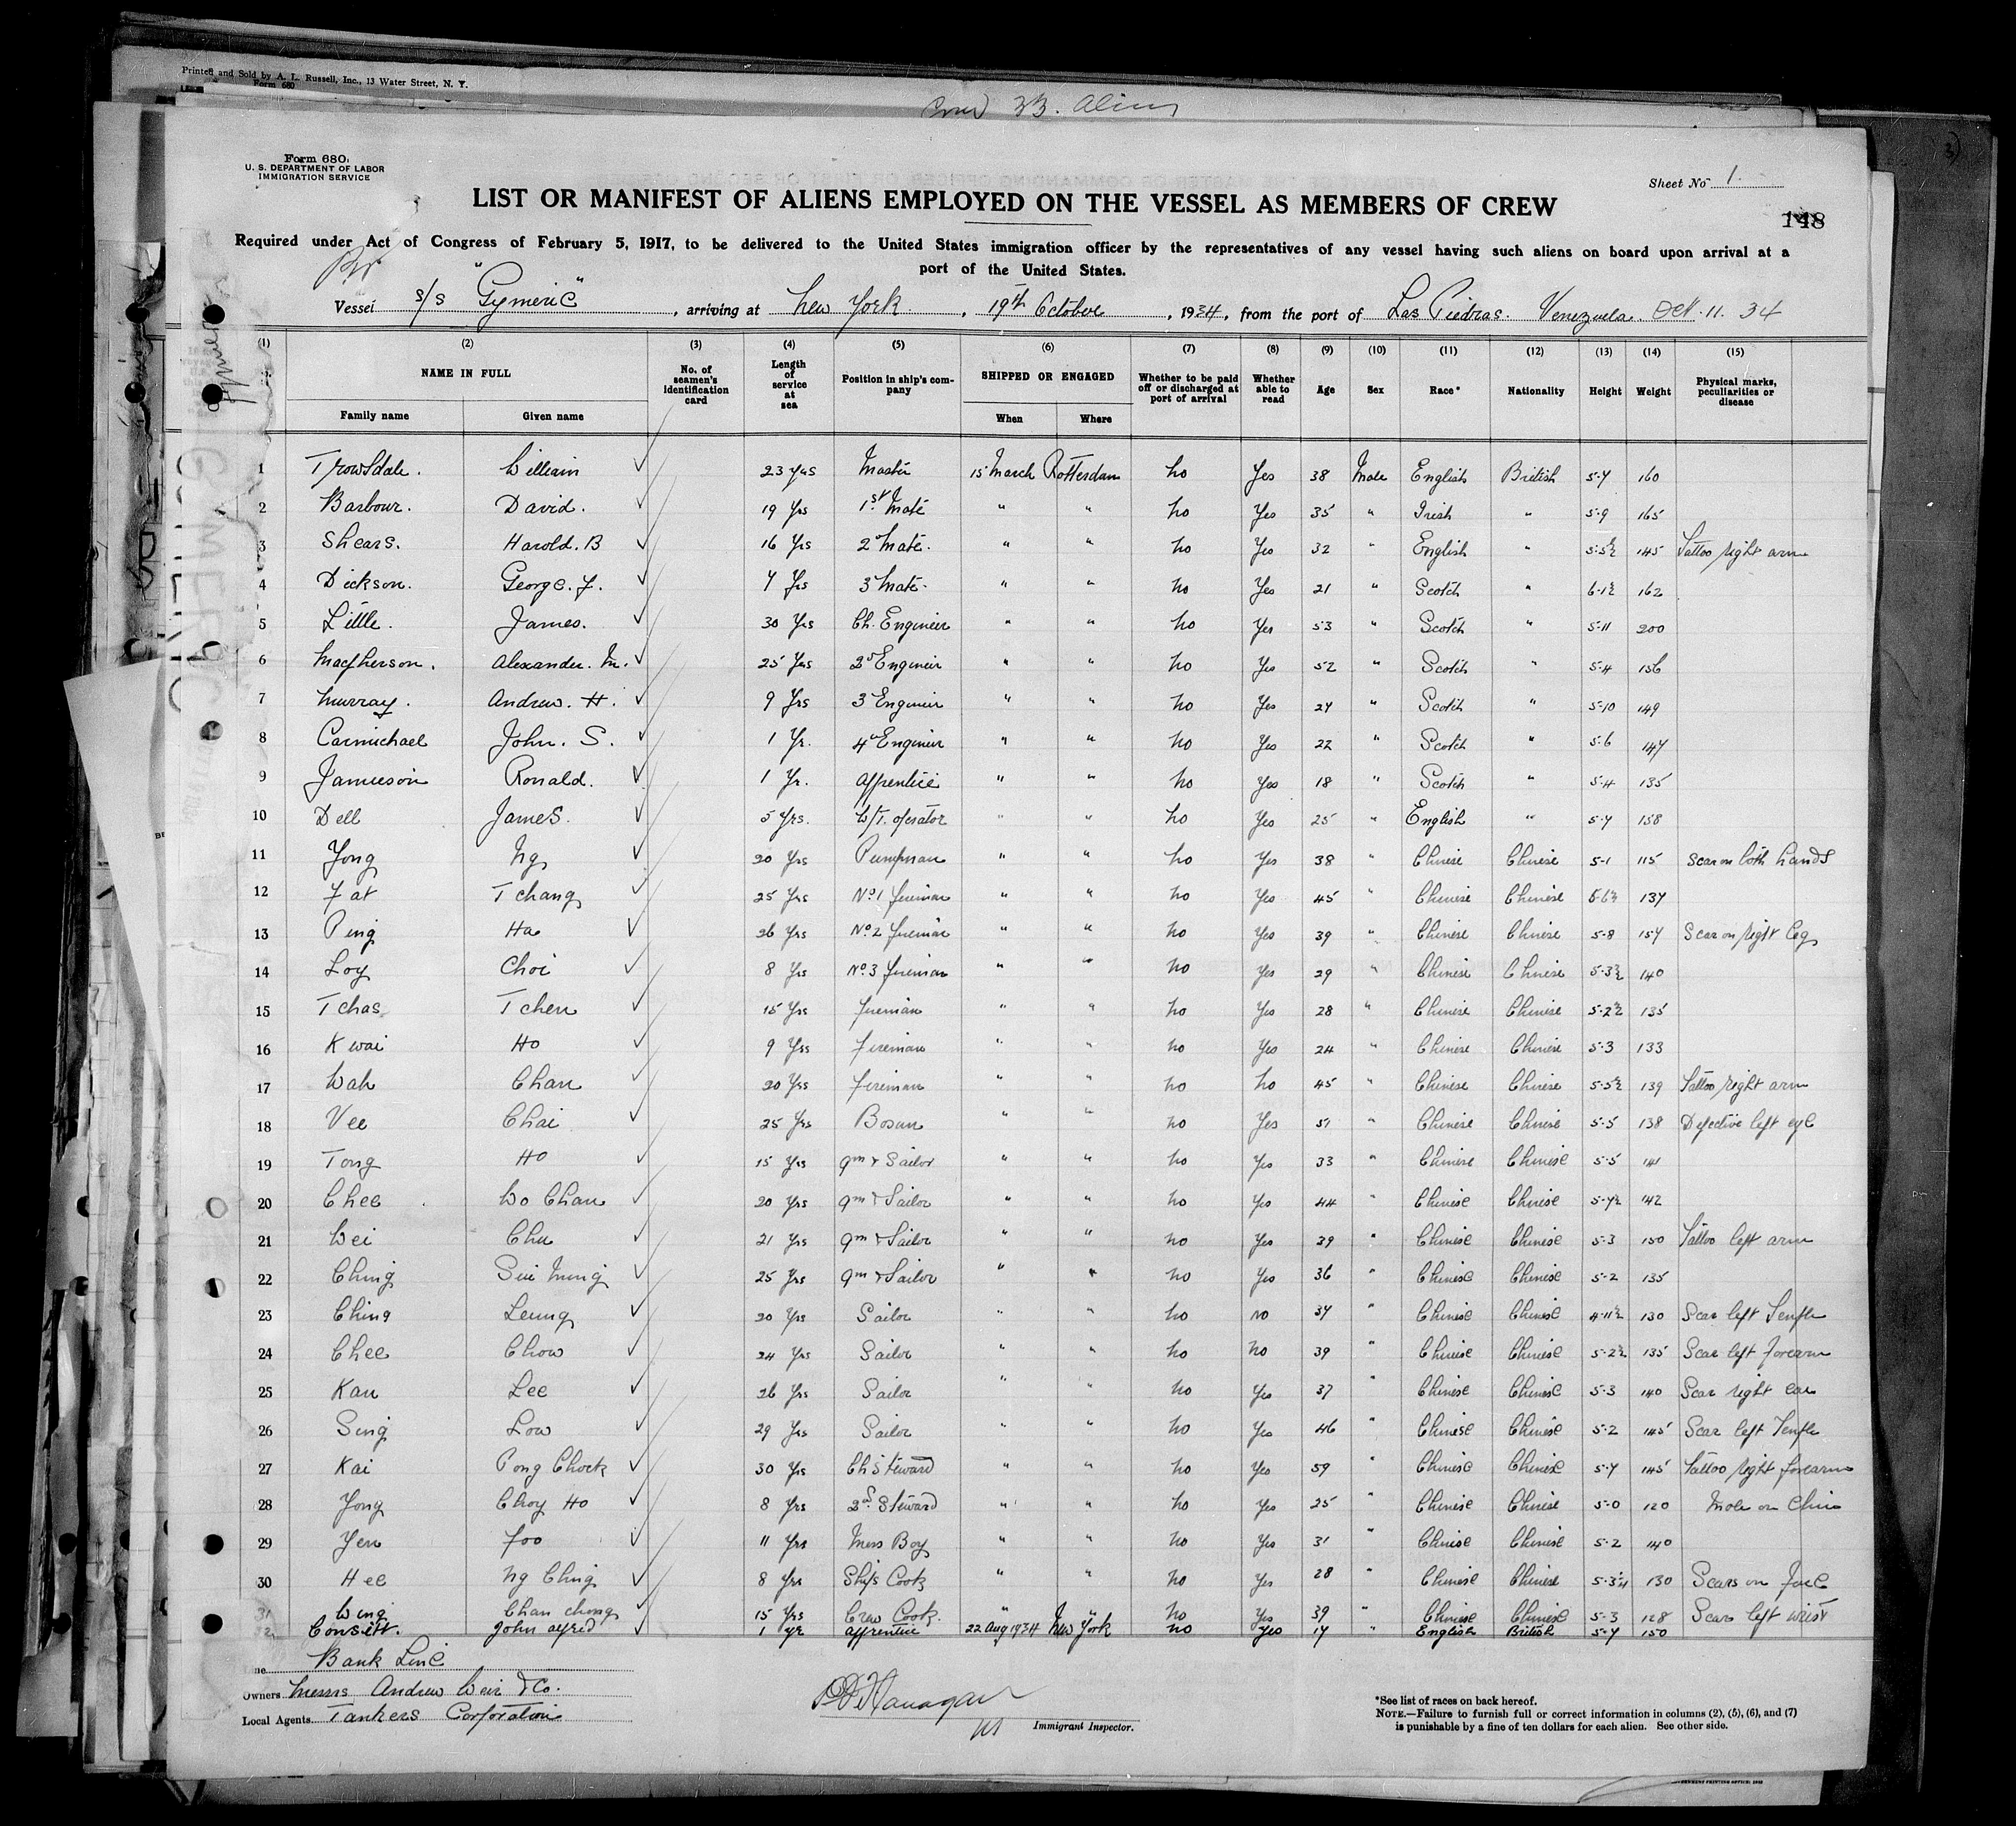 Printed and Sold by A. L. Russell, Inc., 13 Water Street, N. Y.
Form 680
33. Aliens
Form 680
U. S. DEPARTMENT OF LABOR
IMMIGRATION SERVICE
Sheet No 1.
LIST OR MANIFEST OF ALIENS EMPLOYED ON THE VESSEL AS MEMBERS OF CREW
148
Required under Act of Congress of February 5, 1917, to be delivered to the United States immigration officer by the representatives of any vessel having such aliens on board upon arrival at a
port of the United States.
Vessel s/s "Gymeric", arriving at New York, 19th October, 1934, from the port of Las Piedras. Venezuela. Oct. 11. 34
(1) (2) (3) (4) (5) (6) (7) (8) (9) (10) (11) (12) (13) (14) (15)
NAME IN FULL Family name Given name No. of seamen's identification card Length of service at sea Position in ship's company SHIPPED OR ENGAGED When Where Whether to be paid off or discharged at port of arrival Whether able to read Age Sex Race* Nationality Height Weight Physical marks, peculiarities or disease
1 Trowsdale. William ✓ 23 yrs Master 15 March Rotterdam no Yes 38 Male English British 5-7 160
2 Barbour. David. ✓ 19 Yrs 1st Mate " " no Yes 35 " Irish " 5-9 165
3 Shears. Harold. B ✓ 16 Yrs 2 Mate. " " no Yes 32 " English " 5-5½ 145 Tattoo right arm
4 Dickson. George. J. ✓ 7 Yrs 3 Mate. " " no Yes 21 " Scotch " 6-1½ 162
5 Little. James. ✓ 30 Yrs Ch. Engineer " " no Yes 53 " Scotch " 5-11 200
6 Macpherson. Alexander. M. ✓ 25 Yrs 2d Engineer " " no Yes 52 " Scotch " 5-4 156
7 Murray. Andrew. H. ✓ 9 Yrs 3 Engineer " " no Yes 27 " Scotch " 5-10 149
8 Carmichael John. S. ✓ 1 Yr. 4 Engineer " " no Yes 22 " Scotch " 5-6 147
9 Jamieson Ronald. ✓ 1 Yr. Apprentice " " no Yes 18 " Scotch " 5-4 135
10 Dell James. ✓ 5 Yrs. W/T. operator " " no Yes 25 " English " 5-7 158
11 Yong Ng ✓ 20 Yrs Pumpman " " no Yes 38 " Chinese Chinese 5-1 115 Scar on both hands
12 Fat Tchang ✓ 25 Yrs No 1 fireman " " no Yes 45 " Chinese Chinese 5-6½ 137
13 Ping Ha ✓ 26 Yrs No 2 fireman " " no Yes 39 " Chinese Chinese 5-8 157 Scar on right leg
14 Loy Choi ✓ 8 Yrs No. 3 fireman " " no Yes 29 " Chinese Chinese 5-3½ 140
15 Tchas Tchen ✓ 15 Yrs fireman " " no Yes 28 " Chinese Chinese 5-2½ 135
16 Kwai Ho ✓ 9 Yrs fireman " " no Yes 24 " Chinese Chinese 5-3 133
17 Wah Chan ✓ 20 Yrs fireman " " no no 45 " Chinese Chinese 5-5½ 139 Tattoo right arm
18 Vee Chai ✓ 25 Yrs Bosun " " no Yes 51 " Chinese Chinese 5-5 138 Defective left eye
19 Tong Ho ✓ 15 Yrs qm & Sailor " " no Yes 33 " Chinese Chinese 5-5 141
20 Chee Wo Chan ✓ 20 Yrs qm & Sailor " " no Yes 44 " Chinese Chinese 5-7½ 142
21 Wei Chu ✓ 21 Yrs qm & Sailor " " no Yes 39 " Chinese Chinese 5-3 150 Tattoo left arm
22 Ching Sui Ming ✓ 25 Yrs qm & Sailor " " no Yes 36 " Chinese Chinese 5-2 135
23 Ching Leung ✓ 20 Yrs Sailor " " no no 37 " Chinese Chinese 4-11½ 130 Scar left Temple
24 Chee Chow ✓ 24 Yrs Sailor " " no no 39 " Chinese Chinese 5-2½ 135 Scar left forearm
25 Kan Lee ✓ 26 Yrs Sailor " " no Yes 37 " Chinese Chinese 5-3 140 Scar right ear
26 Sing Low ✓ 29 Yrs Sailor " " no Yes 46 " Chinese Chinese 5-2 145 Scar left Temple
27 Kai Pong Chock ✓ 30 Yrs Ch Steward " " no Yes 59 " Chinese Chinese 5-7 145 Tattoo right forearm
28 Yong Choy Ho ✓ 8 Yrs 2d Steward " " no Yes 25 " Chinese Chinese 5-0 120 Mole on Chin
29 Yen Foo ✓ 11 Yrs Mess Boy " " no Yes 31 " Chinese Chinese 5-2 140
30 Hee Ng Ching ✓ 8 Yrs Ship's Cook " " no Yes 28 " Chinese Chinese 5-3¼ 130 Scars on face
31 Wing Chan chong ✓ 15 Yrs Crew Cook. " " no Yes 39 " Chinese Chinese 5-3 128 Scar left wrist
32 Consitt. John Alfred ✓ 1 yr Apprentice 22 Aug 1934 New York no Yes 17 " English British 5-7 150
Bank Line
Owners Messrs Andrew Weir & Co.
Local Agents. Tankers Corporation
Immigrant Inspector.
*See list of races on back hereof.
NOTE.—Failure to furnish full or correct information in columns (2), (5), (6), and (7)
is punishable by a fine of ten dollars for each alien. See other side.